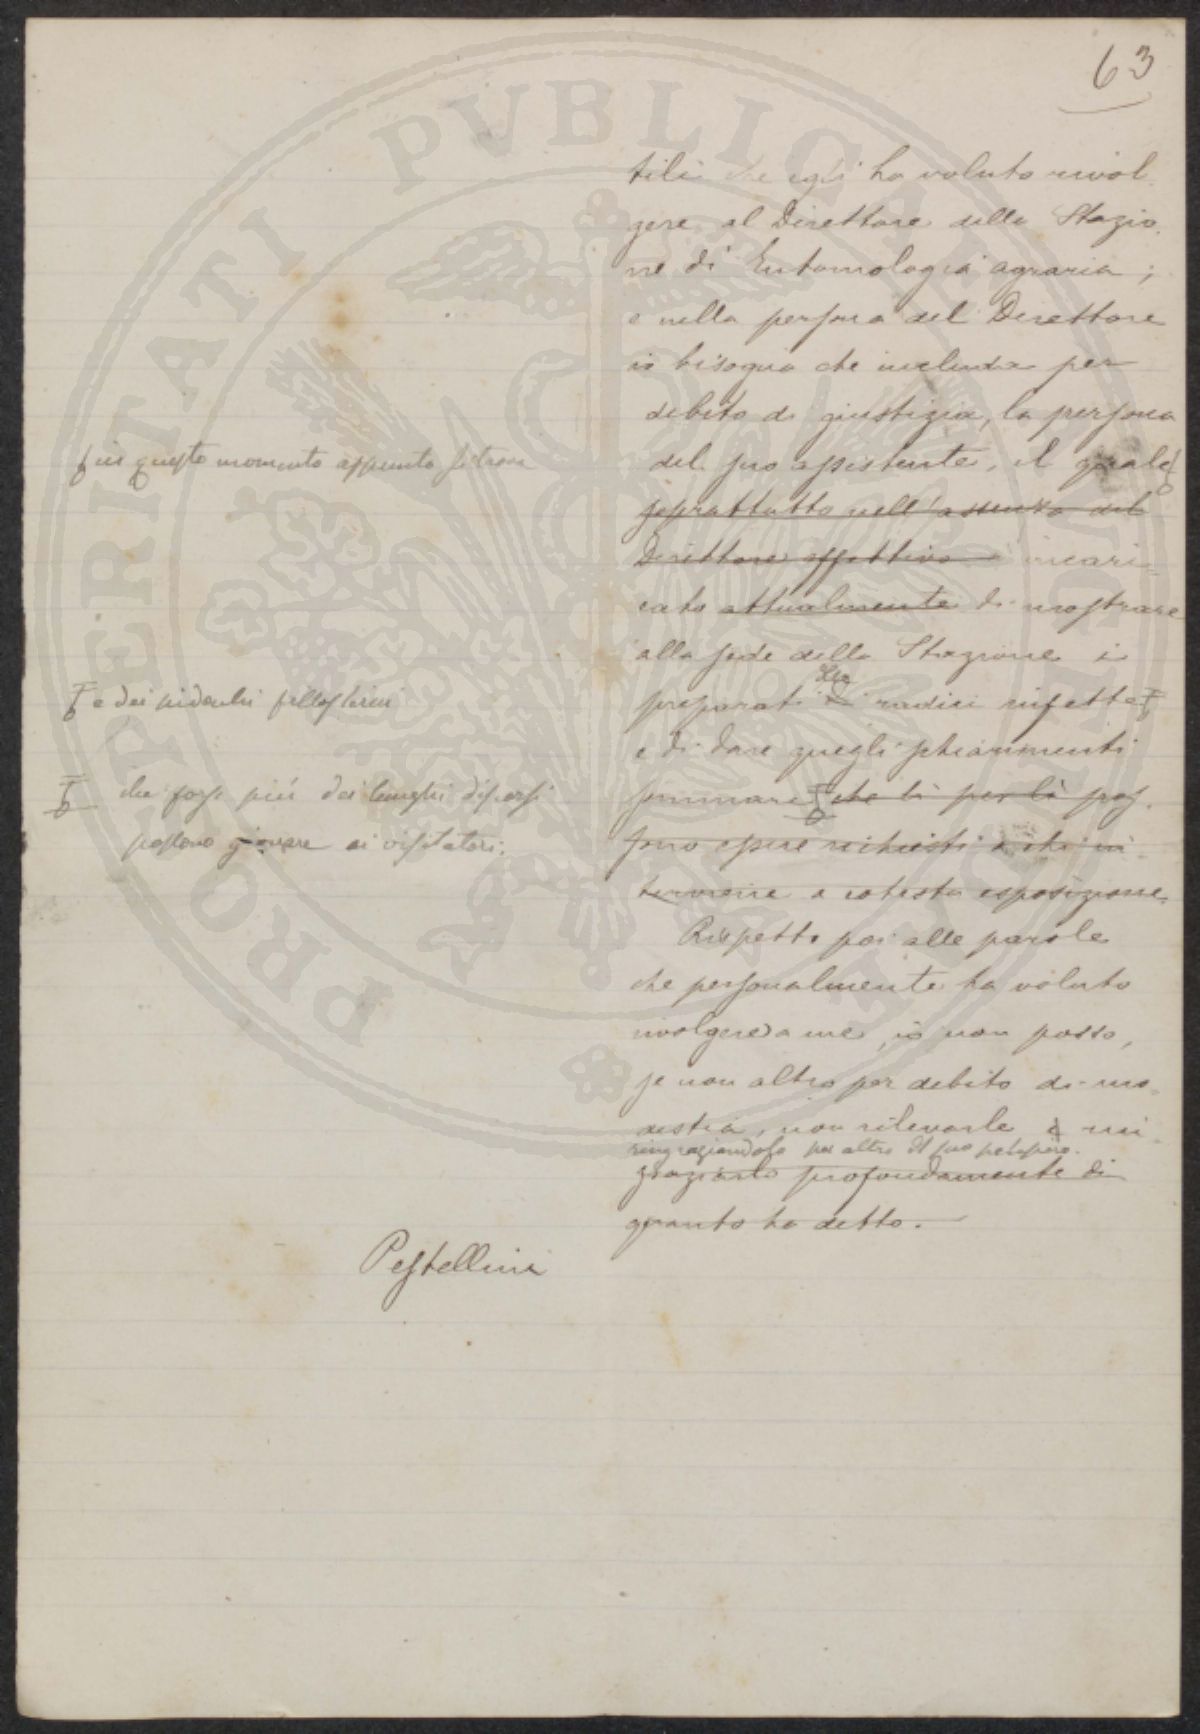 63
tili che egli ha voluto rivol-
gere al Direttore della Stazio-
ne di Entomologia agraria;
e nella persona del Direttore
io bisogna che includa per
debito di giustizia, la persona
del suo assistente, il quale
in questo momento appunto si trova
soprattutto nell'assenza del
Direttore effettivo è incari-
cato attualmente di mostrare
alla sede della Stazione i
preparati di radici infette
e dei fillosserici
e di dare quegli schiarimenti
sommari che lì per lì pos-
che forse più dei lunghi discorsi
possono giovare ai visitatori.
sono essere richiesti a chi in-
terviene a cotesta esposizione.
Rispetto poi alle parole
che personalmente ha voluto
rivolgere a me, io non posso,
se non altro per debito di mo-
destia, non rilevarle e rin-
ringraziandolo per altro del suo pensiero.
graziarlo profondamente di
quanto ha detto.
Pestellini
PROSPERITATI PVBLICAE AVGENDAE